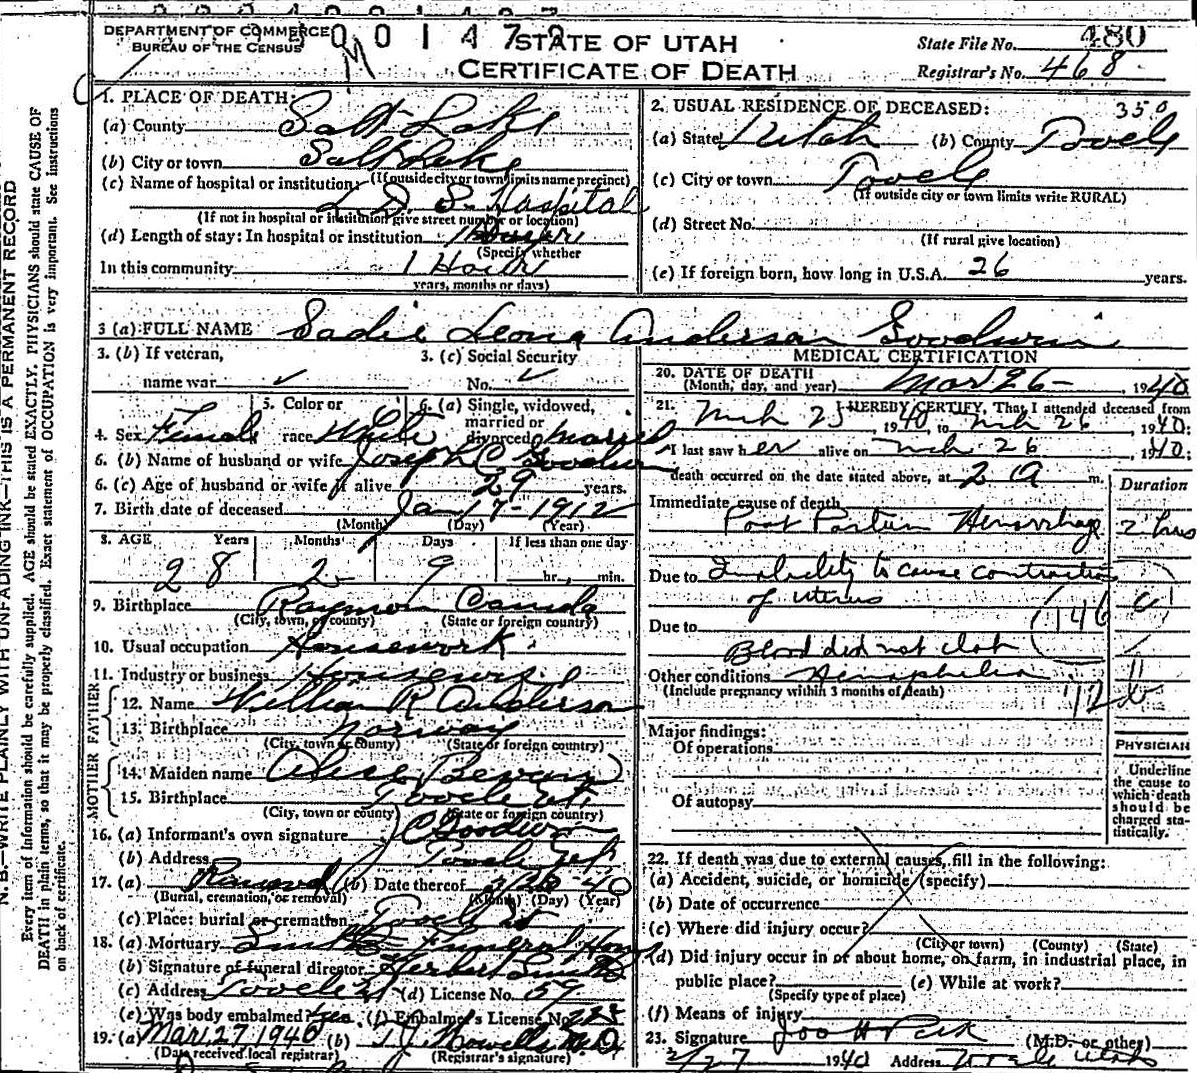 DEPARTMENT OF COMMERCE
BUREAU OF THE CENSUS
STATE OF UTAH
CERTIFICATE OF DEATH
State File No. 480
Registrar's No. 468
1. PLACE OF DEATH:
(a) County Salt Lake
(b) City or town Salt Lake
(If outside city or town limits name precinct)
(c) Name of hospital or institution:
L D S Hospital
(If not in hospital or institution give street number or location)
(d) Length of stay: In hospital or institution
(Specify whether
In this community 1 Hour
years, months or days)
2. USUAL RESIDENCE OF DECEASED: 350
(a) State Utah (b) County Tooele
(c) City or town Tooele
(If outside city or town limits write RURAL)
(d) Street No.
(If rural give location)
(e) If foreign born, how long in U.S.A. 26 years.
3 (a) FULL NAME Sadie Leona Anderson Goodwin
3. (b) If veteran,
name war ✓
3. (c) Social Security
No. ✓
4. Sex Female
5. Color or
race White
6. (a) Single, widowed,
married or
divorced Married
6. (b) Name of husband or wife Joseph C Goodwin
6. (c) Age of husband or wife if alive 29 years.
7. Birth date of deceased Jan 17-1912
(Month) (Day) (Year)
8. AGE Years Months Days If less than one day
28 2 9 hr. min.
9. Birthplace Raymon Canada
(City, town, or county) (State or foreign country)
10. Usual occupation Housework
11. Industry or business Housewife
FATHER
12. Name William R Anderson
13. Birthplace Norway
(City, town or county) (State or foreign country)
MOTHER
14. Maiden name Alice Bevan
15. Birthplace Tooele Ut
(City, town or county) (State or foreign country)
16. (a) Informant's own signature J C Goodwin
(b) Address Tooele
17. (a) Removal (b) Date thereof 3/28-40
(Burial, cremation, or removal) (Month) (Day) (Year)
(c) Place: burial or cremation Tooele Ut
18. (a) Mortuary Smith Funeral Home
(b) Signature of funeral director Herbert Smith
(c) Address Tooele Ut (d) License No. 159
(e) Was body embalmed? yes (f) Embalmer's License No.
19. (a) Mar. 27 1940 (b) T J Howells M.D.
(Date received local registrar) (Registrar's signature)
MEDICAL CERTIFICATION
20. DATE OF DEATH
(Month, day, and year) Mar 26- 1940
21. I HEREBY CERTIFY, That I attended deceased from
Mch 25, 1940, to Mch 26, 1940;
I last saw her alive on Mch 26, 1940;
death occurred on the date stated above, at 2 a m.
Duration
Immediate cause of death
Post Partum Hemorrhage 2 hrs
Due to Inability to cause contraction
of uterus 146
Due to
Blood did not clot
Other conditions Hemophilia
(Include pregnancy within 3 months of death)
Major findings:
Of operations
Of autopsy
PHYSICIAN
Underline
the cause to
which death
should be
charged sta-
tistically.
22. If death was due to external causes, fill in the following:
(a) Accident, suicide, or homicide (specify)
(b) Date of occurrence
(c) Where did injury occur?
(City or town) (County) (State)
(d) Did injury occur in or about home, on farm, in industrial place, in
public place? (e) While at work?
(Specify type of place)
(f) Means of injury
23. Signature Jos H Peck (M.D. or other)
3/27 1940 Address Tooele Utah
N. B.—WRITE PLAINLY WITH UNFADING INK—THIS IS A PERMANENT RECORD
Every item of information should be carefully supplied. AGE should be stated EXACTLY. PHYSICIANS should state CAUSE OF
DEATH in plain terms, so that it may be properly classified. Exact statement of OCCUPATION is very important. See instructions
on back of certificate.